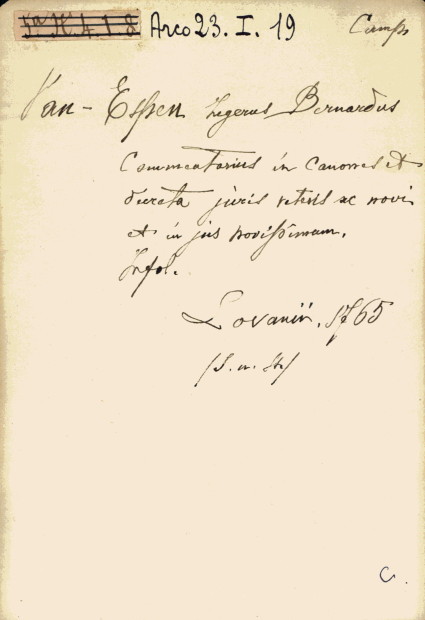 5ª H 4 1 8 Arco 23. I. 19 Camps
Van-Espen Zegerus Bernardus
Commentarius in Canones et
decreta juris veteris ac novi
et in jus novissimum.
Infol.
Lovanii, 1765
(S. n. )
C.